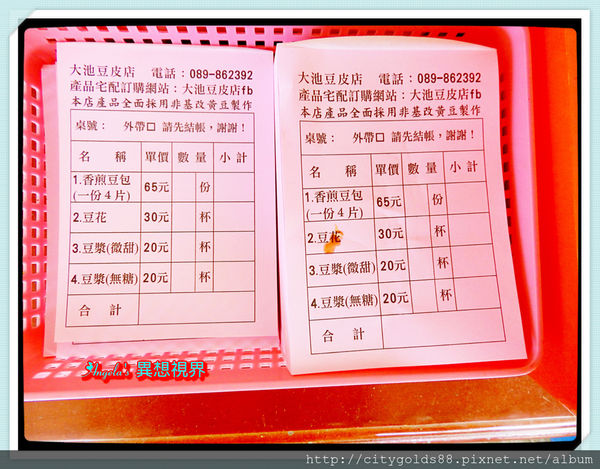 大池豆皮店 電話：089-862392
產品宅配訂購網站：大池豆皮店fb
本店產品全面採用非基改黃豆製作
桌號： 外帶□ 請先結帳，謝謝！
名 稱 單價 數量 小計
1.香煎豆包 65元 份
(一份4片)
2.豆花 30元 杯
3.豆漿(微甜) 20元 杯
4.豆漿(無糖) 20元 杯
合 計
大池豆皮店 電話：089-862392
產品宅配訂購網站：大池豆皮店fb
本店產品全面採用非基改黃豆製作
桌號： 外帶□ 請先結帳，謝謝！
名 稱 單價 數量 小計
1.香煎豆包 65元 份
(一份4片)
2.豆花 30元 杯
3.豆漿(微甜) 20元 杯
4.豆漿(無糖) 20元 杯
合 計
Angela's 異想視界
http://citygolds88.pixnet.net/album